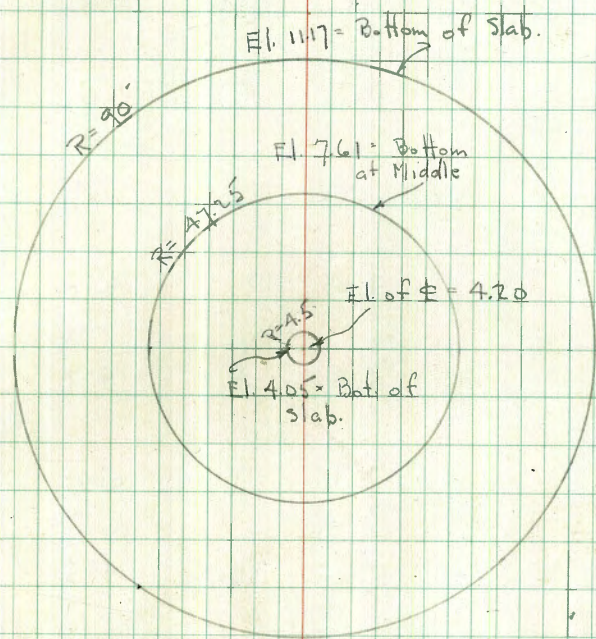 El. 11.17 = Bottom of Slab.
R = 90'
El. 7.61 = Bottom
at Middle
R = 47.25
El. of ℄ = 4.20
R=4.5
El. 4.05 = Bot. of
slab.